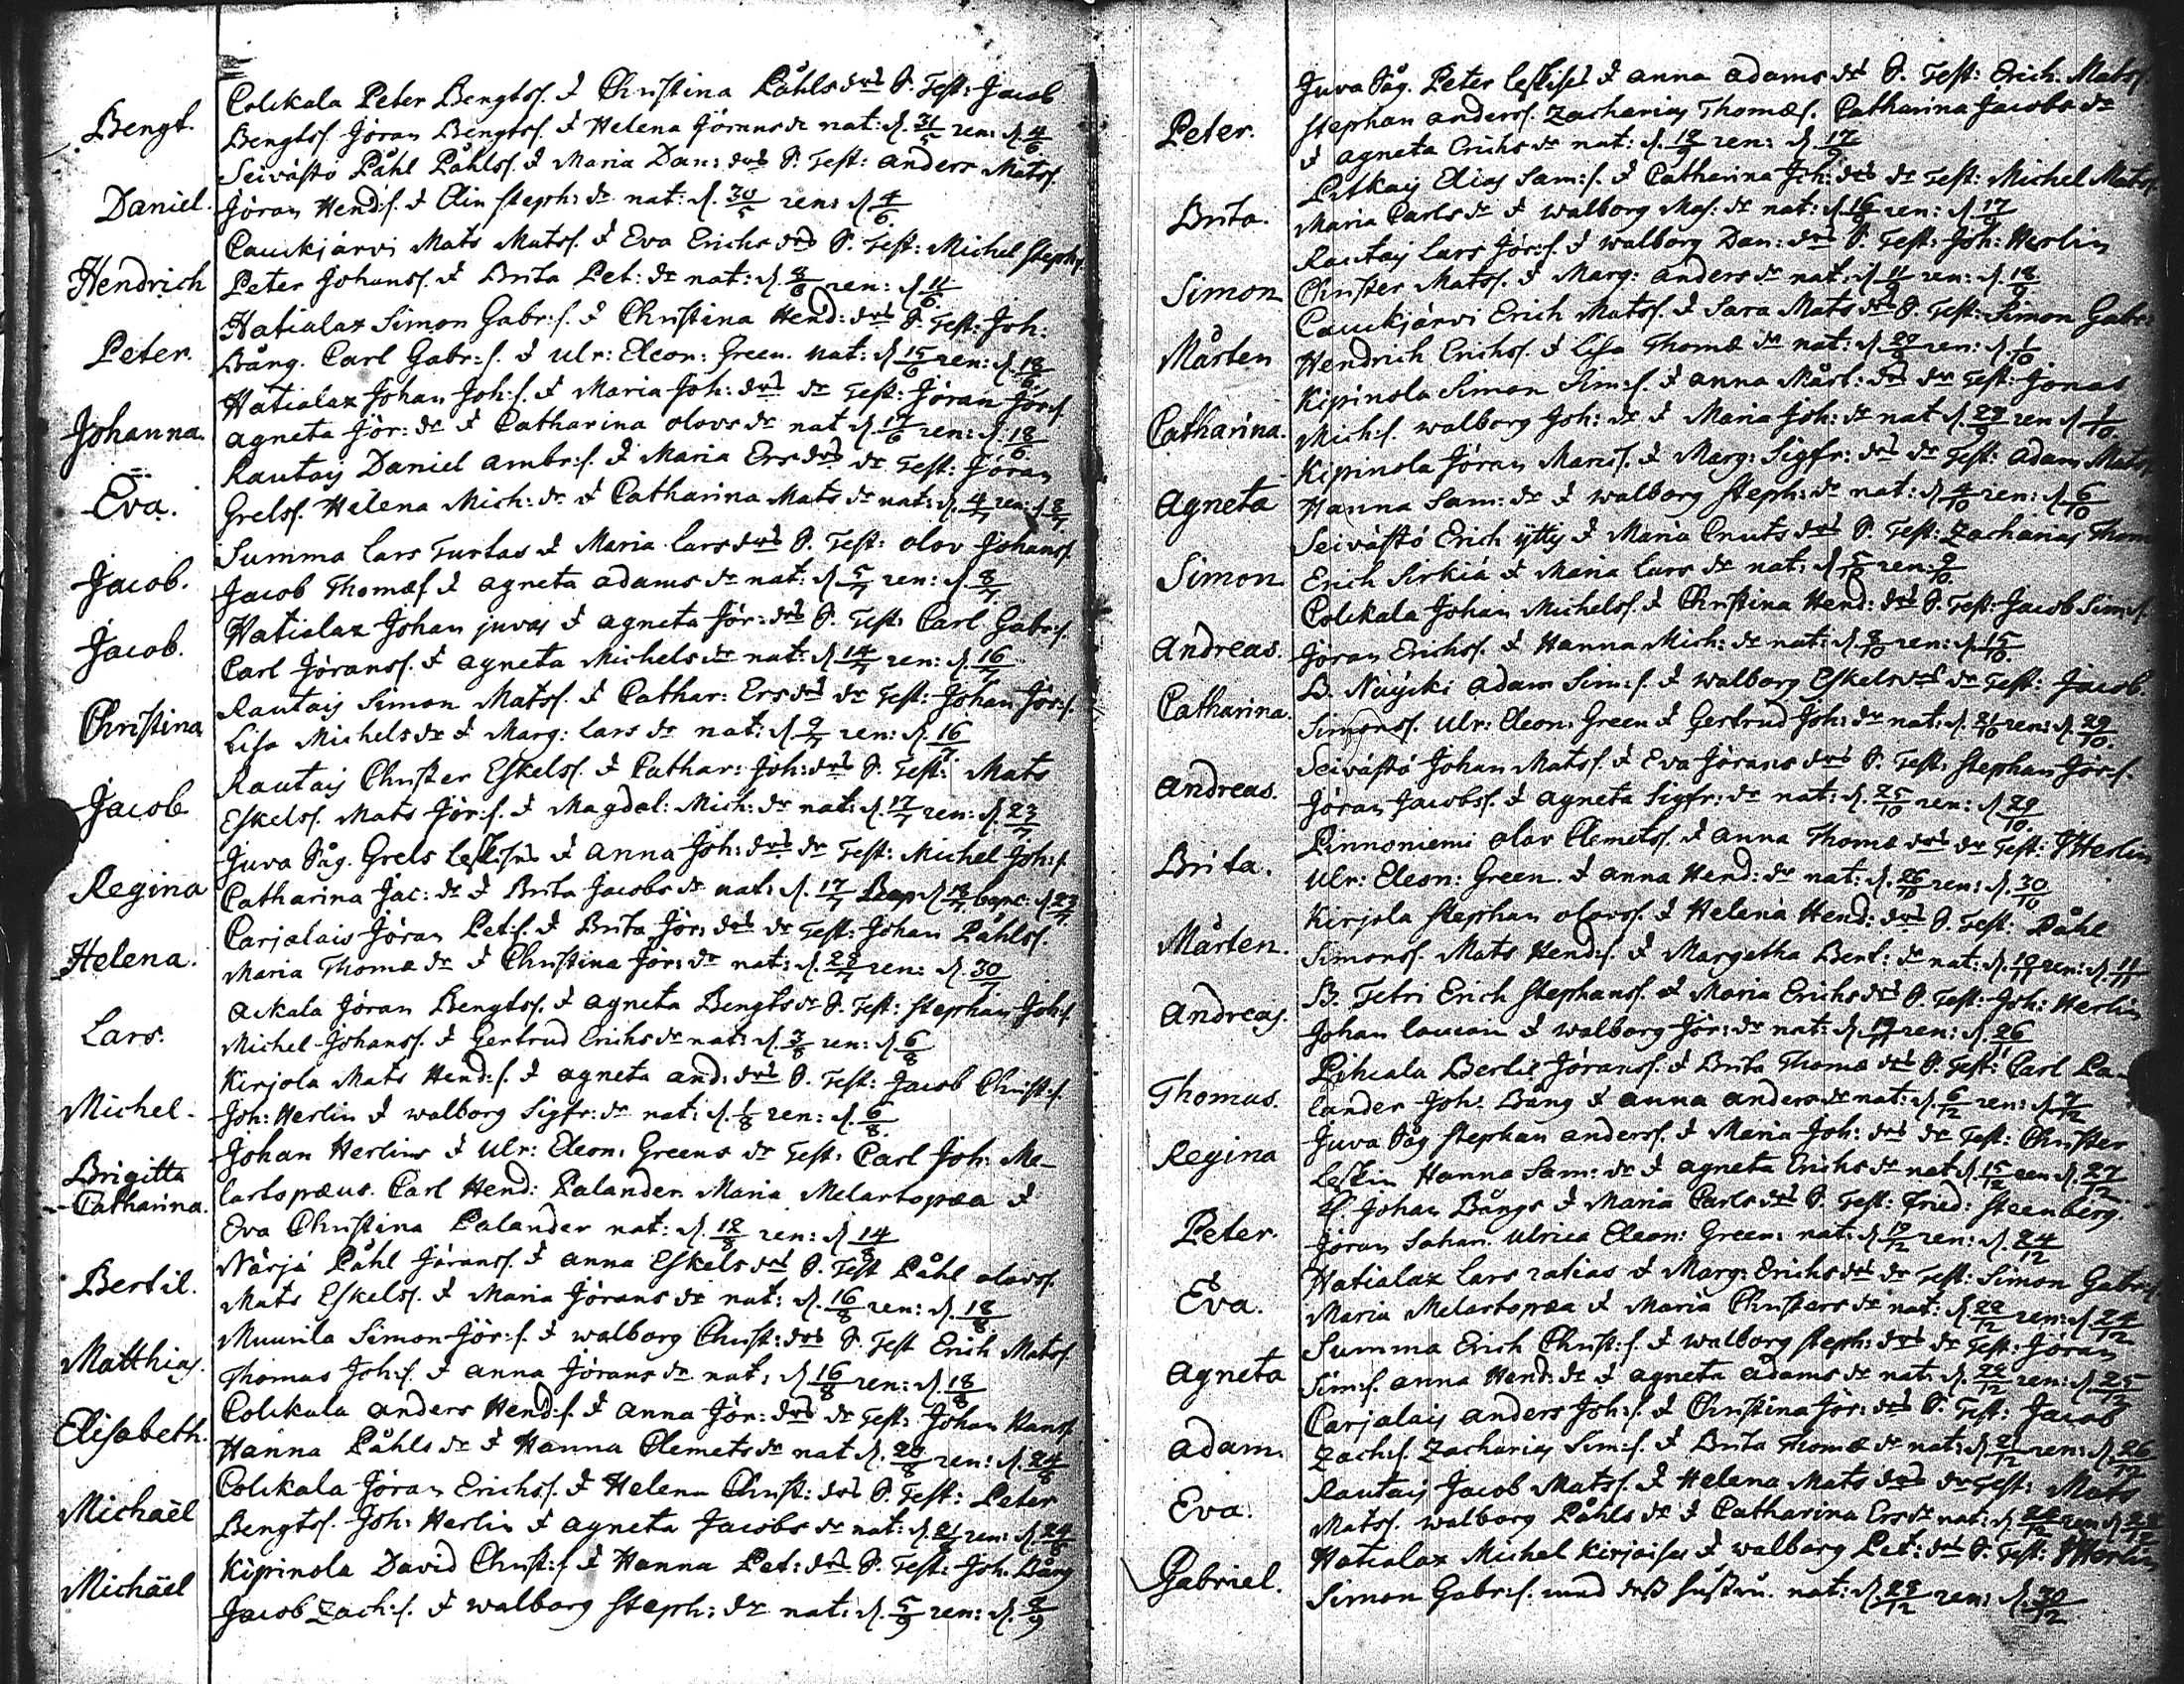 Bengt. Colckala Peter Bengtss. & Christina Påhls dr:s S. Test: Jacob
Bengtss. Jöran Bengtss. & Helena Jörans dr nat: d. 31/5 ren: d. 4/6
Daniel. Seivästö Påhl Påhlss. & Maria Dan: dr:s S. Test: Anders Matss.
Jöran Hend:s. & Elin Steph: dr nat: d. 30/5 ren: d. 4/6
Hendrich Cauckjärvi Mats Matss. & Eva Erichs dr:s S. Test: Michel Stephs.
Peter Johanss. & Brita Pet: dr nat: d. 8/6 ren: d. 11/6
Peter. Hatialax Simon Gabr:s. & Christina Hend: dr:s S. Test: Joh:
Bång. Carl Gabr:s. & Ulr: Eleon: Green. nat: d. 15/6 ren: d. 18/6
Johanna. Hatialax Johan Joh:s. & Maria Joh: dr:s dr Test: Jöran Jör:s.
Agneta Jör: dr & Catharina Olovs dr nat d. 17/6 ren: d. 18/6
Eva. Rautaij Daniel Ambr:s. & Maria Ers dr:s dr Test: Jöran
Grelss. Helena Mich: dr & Catharina Mats dr nat: d. 4/7 ren: d. 8/7
Jacob. Summa Lars Turtas & Maria Lars dr:s S. Test: Olov Johanss.
Jacob Thomæs. & Agneta Adams dr nat: d. 5/7 ren: d. 8/7
Jacob. Hatialax Johan Juvas & Agneta Jör: dr:s S. Test: Carl Gabr:s.
Carl Jöranss. & Agneta Michels dr nat: d. 14/7 ren: d. 16/7
Christina Rautaij Simon Matss. & Cathar: Ers dr:s dr Test: Johan Jör:s.
Lisa Michels dr & Marg: Lars dr nat: d. 9/7 ren: d. 16/7
Jacob Rautaij Christer Eskelss. & Cathar: Joh: dr:s S. Test: Mats
Eskelss. Mats Jör:s. & Magdal: Mich: dr nat: d. 17/7 ren: d. 23/7
Regina Juva Såg. Grels & Anna Joh: dr:s dr Test: Michel Joh:s.
Catharina Jac: dr & Brita Jacobs dr nat: d. 17/7 d. 18/7 d. 23/7
Helena. Carjalais Jöran Pet:s. & Brita Jör: dr:s dr Test: Johan Påhlss.
Maria Thomæ dr & Christina Jör: dr nat: d. 28/7 ren: d. 30/7
Lars. Ackala Jöran Bengtss. & Agneta Bengts dr S. Test: Stephan Joh:s.
Michel Johanss. & Gertrud Erichs dr nat: d. 3/8 ren: d. 6/8
Michel. Kirjola Mats Hend:s. & Agneta And: dr:s S. Test: Jacob Christ:s.
Joh: Herlin & Walborg Sigfr: dr nat: d. 1/8 ren: d. 6/8
Brigitta Catharina. Johan Herlins & Ulr: Eleon: Greens dr Test: Carl Joh: Me-
lartopæus. Carl Hend: Palander. Maria Melartopæa &
Eva Christina Palander nat: d. 12/8 ren: d. 14/8
Bertil. Närjä Påhl Jöranss. & Anna Eskels dr:s S. Test Påhl Olovss.
Mats Eskelss. & Maria Jörans dr nat: d. 16/8 ren: d. 18/8
Matthias. Muurila Simon Jör:s. & Walborg Christ: dr:s S. Test Erich Matss.
Thomas Joh:s. & Anna Jörans dr nat: d. 16/8 ren: d. 18/8
Elisabeth. Colckala Anders Hend:s. & Anna Jör: dr:s dr Test: Johan Hanss.
Hanna Påhls dr & Hanna Clemets dr nat d. 20/8 ren: d. 24/8
Michaël Colckala Jöran Erichss. & Helena Christ: dr:s S. Test: Peter
Bengtss. Joh: Herlin & Agneta Jacobs dr nat: d. 21/8 ren: d. 24/8
Michäel Kipinola David Christ:s. & Hanna Pet: dr:s S. Test: Joh. Bång
Jacob Zach:s. & Walborg Steph: dr nat: d. 5/9 ren: d. 8/9
Peter. Juva Såg. Peter Leskis & Anna Adams dr:s S. Test: Erich Matss.
Stephan Anderss. Zacharias Thomæs. Catharina Jacobs dr
& Agneta Erichs dr nat: d. ren: d. 17/9
Brita. Pitkaij Elias Sam:s. & Catharina Joh: dr:s dr Test: Michel Matss.
Maria Carls dr & Walborg Mas: dr nat: d. 16/9 ren: d. 17/9
Simon Rautaij Lars Jör:s. & Walborg Dan: dr:s S. Test: Joh: Herlin
Christer Matss. & Marg: Anders dr nat: d. 11/9 ren: d. 18/9
Mårten Cauckjärvi Erich Matss. & Sara Mats dr:s S. Test: Simon Gabr:
Hendrich Erichss. & Lisa Thomæ dr nat: d. 29/9 ren: d. 1/10
Catharina. Kipinola Simon Sim:s. & Anna Mårt: dr:s dr Test: Jonas
Mich:s. Walborg Joh: dr & Maria Joh: dr nat d. 29/9 ren d. 1/10
Agneta Kipinola Jöran Marcss. & Marg: Sigfr: dr:s dr Test: Adam Matss.
Hanna Sam: dr & Walborg Steph: dr nat: d. 4/10 ren: d. 6/10
Simon Seivästö Erich Ytty & Maria Cnuts dr:s S. Test: Zacharias Thom
Erich Sirkiä & Maria Lars dr nat: d. 5/10 ren: 9/10
Andreas. Colckala Johan Michelss. & Christina Hend: dr:s S. Test: Jacob Sim:s.
Jöran Erichss. & Hanna Mich: dr nat: d. 8/10 ren: d. 15/10
Catharina. B. Näycki Adam Sim:s. & Walborg Eskels dr:s dr Test: Jacob
Simonss. Ulr: Eleon: Green & Gertrud Joh: dr nat: d. 21/10 ren: d. 29/10
Andreas. Seivästö Johan Matss. & Eva Jörans dr:s S. Test: Stephan Jör:s.
Jöran Jacobss. & Agneta Sigfr: dr nat: d. 25/10 ren: d. 29/10
Brita. Pinnoniemi Olov Clemetss. & Anna Thomæ dr:s dr Test: J Herlin
Ulr: Eleon: Green. & Anna Hend: dr nat: d. 26/10 ren: d. 30/10
Mårten. Kirjola Stephan Olovss. & Helena Hend: dr:s S. Test: Påhl
Simonss. Mats Hend:s. & Margetha Bert: dr nat: d. 10/11 ren: d. 11/11
Andreas. B. Tetri Erich Stephanss. & Maria Erichs dr:s S. Test: Joh: Herlin
Johan Laucain & Walborg Jör: dr nat: d. 17/11 ren: d. 26/11
Thomas. Pihcala Bertil Jöranss. & Brita Thomæ dr:s S. Test: Carl Pa-
lander Joh: Bång & Anna Anders dr nat: d. 6/12 ren: d. 7/12
Regina Juva Såg Stephan Anderss. & Maria Joh: dr:s dr Test: Christer
Leskin Hanna Sam: dr & Agneta Erichs dr nat d. 15/12 ren d. 27/12
Peter. Johan Bångs & Maria Carls dr:s S. Test: Fried: Steenberg.
Jöran Sahan. Ulrica Eleon: Green: nat: d. 19/12 ren: d. 24/12
Eva. Hatialax Lars Ratias & Marg: Erichs dr:s dr Test: Simon Gabr:s.
Maria Melartopæa & Maria Christers dr nat: d. 22/12 ren: d. 24/12
Agneta Summa Erich Christ:s. & Walborg Steph: dr:s dr Test: Jöran
Sim:s. Anna Hend: dr & Agneta Adams dr nat: d. 22/12 ren: d. 25/12
Adam. Carjalaij Anders Joh:s. & Christina Jör: dr:s S. Test: Jacob
Zach:s. Zacharias Sim:s. & Brita Thomæ dr nat: d. 21/12 ren: d. 26/12
Eva. Rautaij Jacob Matss. & Helena Mats dr:s dr Test: Mats
Matss. Walborg Påhls dr & Catharina Ers dr nat: d. ren d.
Gabriel. Hatialax Michel Kirjaises & Walborg Pet: dr:s S. Test: J Herlin
Simon Gabr:s. med dess hustru. nat: d. 29/12 ren: d. 30/12